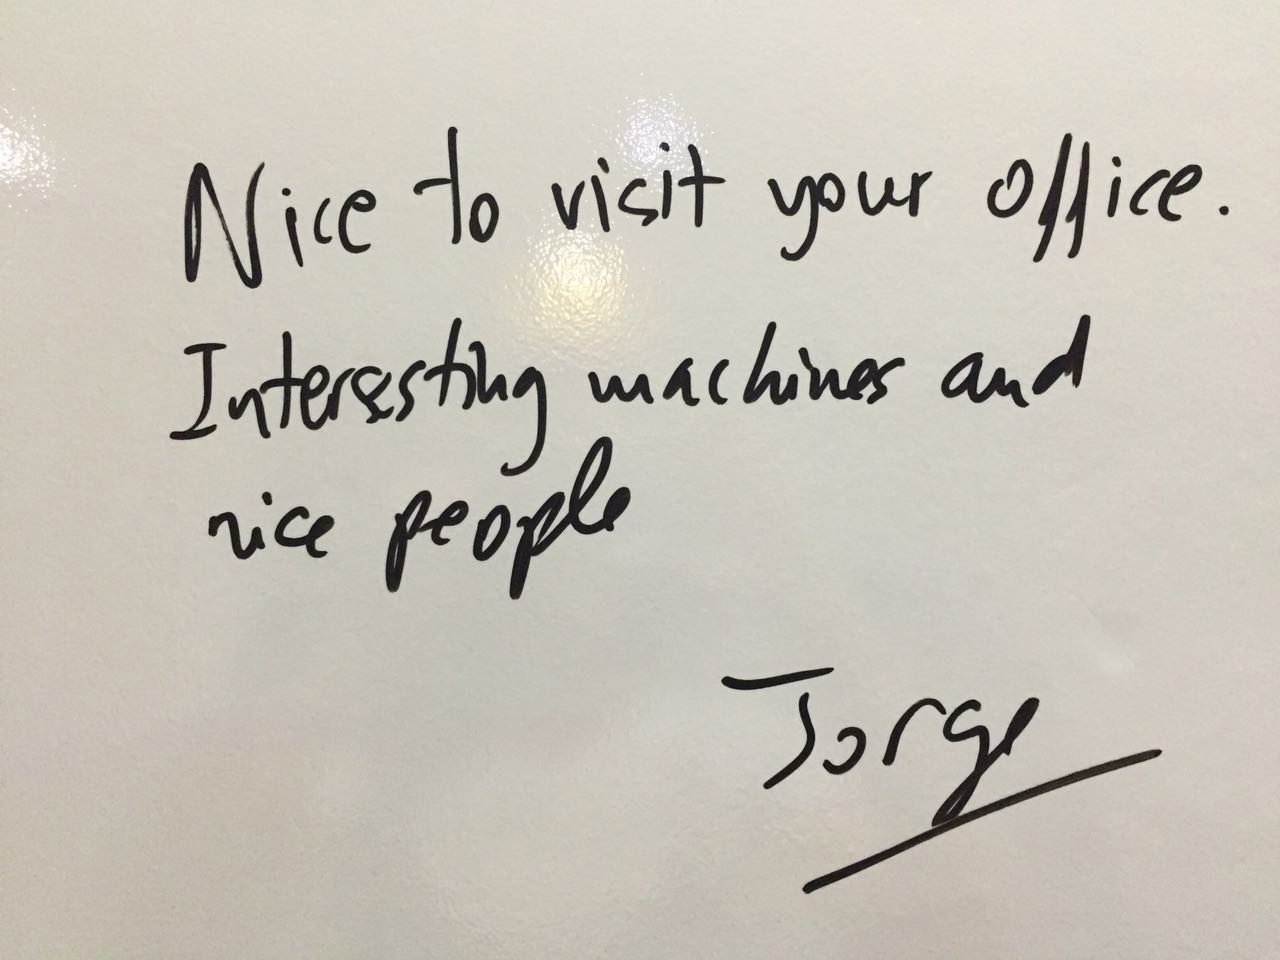 Nice to visit your office.
Interesting machines and
nice people
Jorge